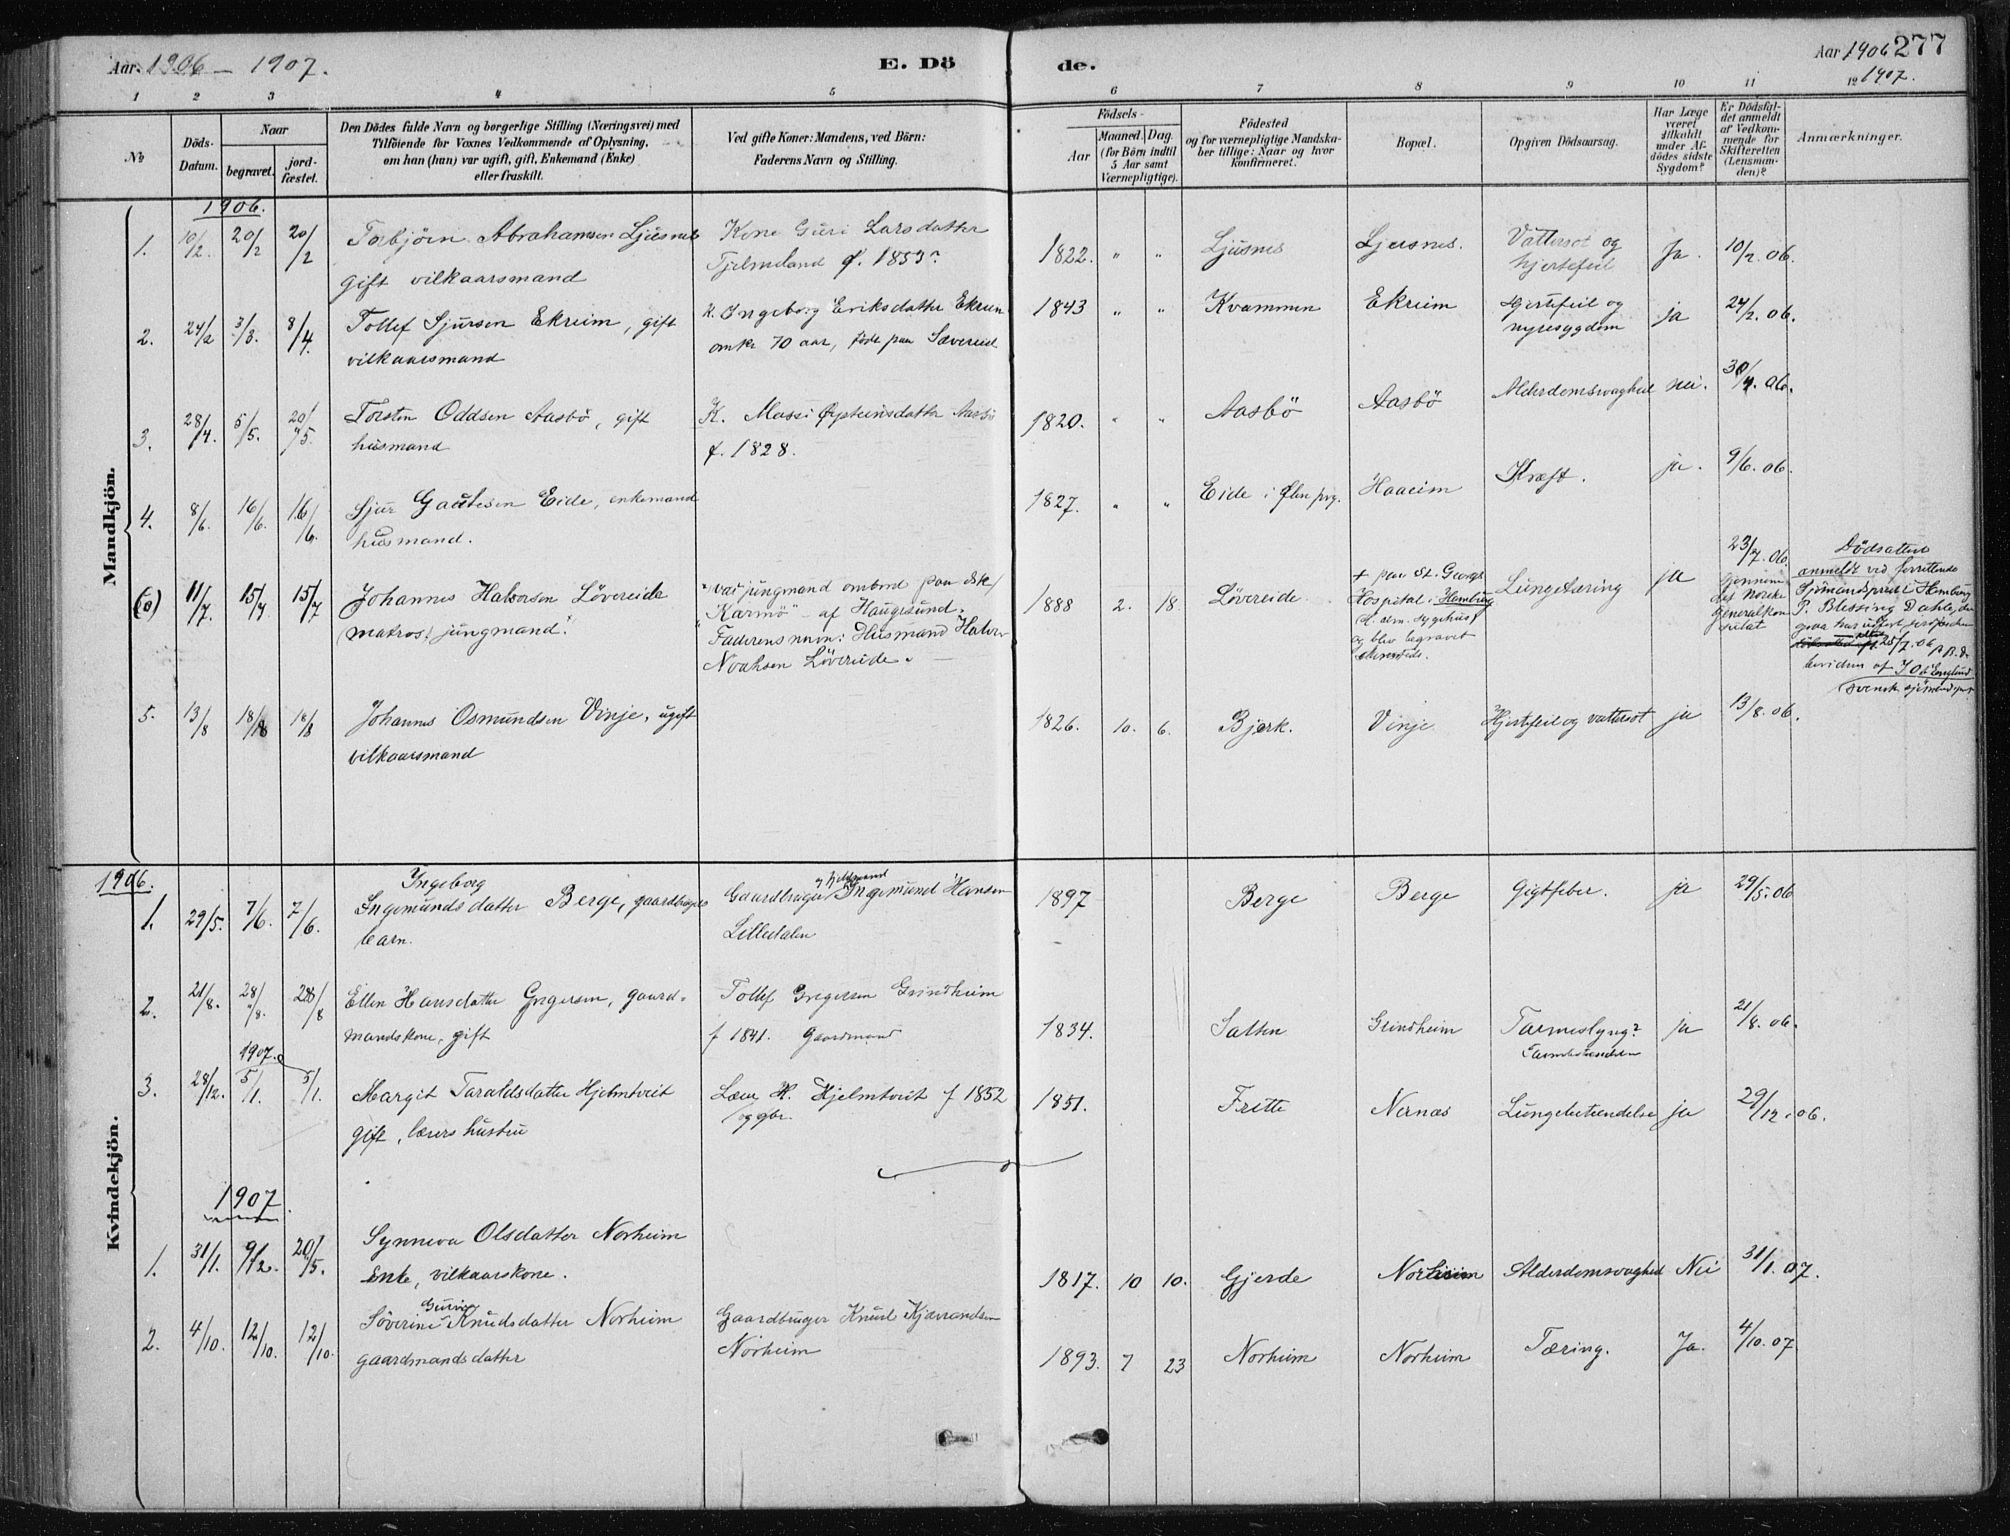 Aar 1906 – 1907.
E. Dö
de.
Aar 1906 277
1907.
1 2 3 4 5 6 7 8 9 10 11 12
No
Döds-Datum.
Naar
begravet.
jord-fæstet.
Den Dödes fulde Navn og borgerlige Stilling (Næringsvei) med
Tilföiende for Voxnes Vedkommende af Oplysning,
om han (hun) var ugift, gift, Enkemand (Enke)
eller fraskilt.
Ved gifte Koner: Mandens, ved Börn:
Faderens Navn og Stilling.
Födsels-
Aar
Maaned. Dag.
(for Börn indtil
5 Aar samt
Værnepligtige).
Födested
og for værnepligtige Mandska-
ber tillige: Naar og hvor
konfirmeret.
Bopæl.
Opgiven Dödsaarsag.
Har Læge
været
tilkaldt
under Af-
dödes sidste
Sygdom?
Er Dödsfal-
det anmeldt
af Vedkom-
mende for
Skifteretten
(Lensman-
den)?
Anmærkninger.
Mandkjön.
1906.
1. 10/2. 20/2 20/2 Torbjörn Abrahamsen Ljusnes Kone Guri Larsdatter 1822. " " Ljusnes Ljusnes. Vattersot og Ja. 10/2. 06.
gift vilkaarsmand Tjelmeland f. 1853? hjertefeil
2. 24/2 3/3. 8/4. Tollef Sjursen Ekreim, gift K. Ingeborg Eriksdatter Ekreim 1843 " " Kvammen Ekreim Hjertefeil og ja 24/2. 06.
vilkaarsmand omkr 70 aar, född paa Sævereid nyresygdom
3. 28/4. 5/5. 20/5. Torsten Oddsen Aasbö, gift K. Massi Öysteinsdatter Aasbö 1820. " " Aasbö Aasbö Alderdomsvaghed nei. 30/4. 06.
husmand f. 1828.
4. 8/6. 16/6. 16/6. Sjur Gautesen Eide, enkemand 1827. " " Eide i Ølen prg. Haaeim Kræft. ja. 9/6. 06.
husmand.
11/7. 15/7 15/7 Johannes Halvorsen Lövereide "var jungmand ombord paa dsk/ 1888 2. 18. Lövereide + paa St. Georgs Lungetæring ja 23/7. 06.
(matros) jungmand. "Karmö" af Haugesund. Hospital i Hamburg gjennem det norske Generalkonsulat
Faderens navn: Husmand Halvor og blev begravet
Noahsen Lövereide.
Dödsatten
anmeldt ved forrettende
Sjömandsprest i Hamburg
P. Blessing Dahle,
5. 13/8 18/8 18/8 Johannes Osmundsen Vinje, ugift 1826. 10. 6. Bjerk. Vinje Hjertefeil og vattersot ja 13/8. 06.
vilkaarsmand
Kvindekjön.
1906.
Ingeborg
1. 29/5. 7/6. 7/6. Ingemundsdatter Berge, gaardbrugers Gaardbruger Ingemund Hansen 1897 Berge Berge Gigtfeber. ja 29/5. 06
barn. Lilledalen
2. 21/8. 28/8. 28/8 Ellen Hansdatter Gregersen, gaard- Tollef Gregersen Grindheim 1834. Satten Grindheim Tarmeslyng? ja 21/8. 06.
mandskone, gift f 1841. Gaardmand Tarmbetændelse
1907.
3. 28/12. 5/1. 5/1. Margit Taraldsdatter Hjelmtveit Lærer H. Hjelmtveit f 1852 1851. Fritte Nernæs Lungebetændelse ja 29/12. 06.
gift, lærers hustru og gbr.
1907.
1. 31/1. 9/2. 20/5. Synneva Olsdatter Norheim 1817. 10 10. Gjerde Norheim Alderdomsvaghed Nei 31/1. 07.
Enke, vilkaarskone.
2. 4/10. 12/10. 12/10. Söverine Knudsdatter Norheim Gaardbruger Knud Kjærandsen 1893. 7 23 Norheim Norheim Tæring. Ja. 4/10. 07.
gaardmandsdatter Norheim